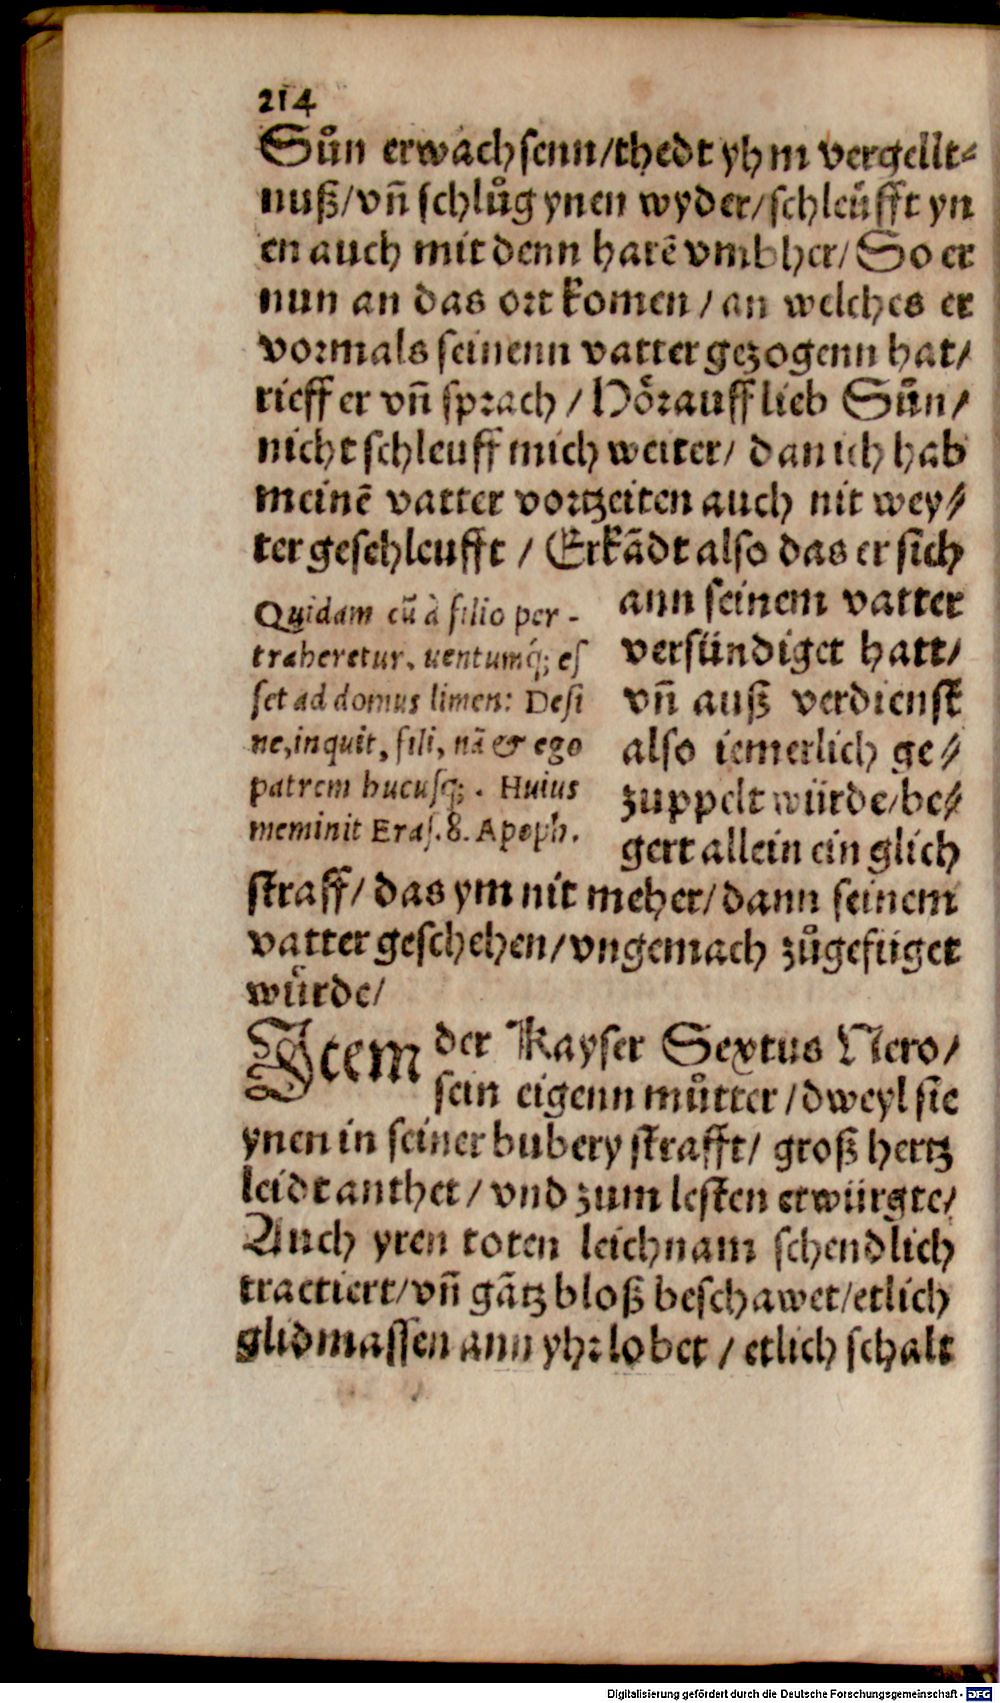 214
Sůn erwachsenn/thedt yhm vergellt⸗
nuß/vñ schlůg ynen wyder/schleüfft yn
en auch mit denn harē vmbher/So er
nun an das ort komen/an welches er
vormals seinenn vatter gezogenn hat/
rieff er vñ sprach/Hörauff lieb Sůn/
nicht schleuff mich weiter/dan ich hab
meinē vatter vortzeiten auch nit wey⸗
ter geschleufft/Erkādt also das er sich
ann seinem vatter
versündiget hatt/
vñ auß verdienst
also iemerlich ge⸗
zuppelt würde/be⸗
gert allein ein glich
Quidam cū à filio per-
traheretur, uentumq́; es
set ad domus limen: Desi
ne, inquit, fili, nā & ego
patrem hucusq;. Huius
meminit Eras. 8. Apoph.
straff/das ym nit meher/dann seinem
vatter geschehen/vngemach zůgefüget
würde/
Item der Kayser Sextus Nero/
sein eigenn můtter/dweyl sie
ynen in seiner bubery strafft/groß hertz
leidt anthet/vnd zum lesten erwürgte/
Auch yren toten leichnam schendlich
tractiert/vñ gātz bloß beschawet/etlich
glidmassen ann yhr lobet/etlich schalt
Digitalisierung gefördert durch die Deutsche Forschungsgemeinschaft - DFG